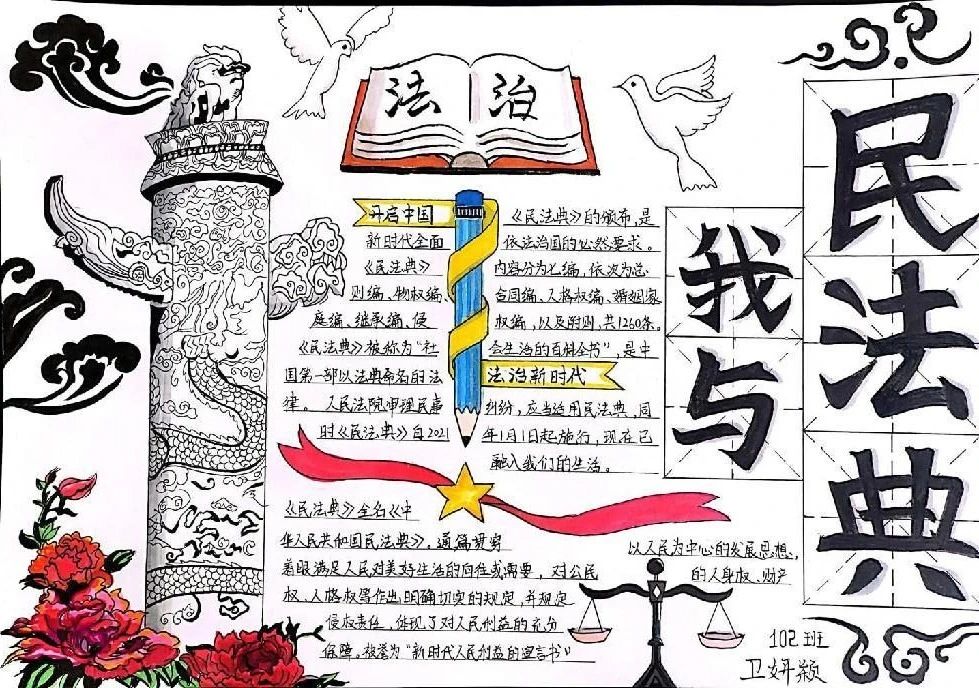 法治
我与
民法典
开启中国
新时代全面
《民法典》的颁布，是
依法治国的必然要求。
《民法典》内容分为七编，依次为总
则编、物权编、合同编、人格权编、婚姻家
庭编、继承编、侵权编，以及附则，共1260条。
《民法典》被称为“社会生活的百科全书”，是中
国第一部以法典命名的法
法治新时代
律。人民法院审理民事纠纷，应当适用民法典，同
时《民法典》自2021年1月1日起施行，现在已
融入我们的生活。
《民法典》全名《中
华人民共和国民法典》，通篇贯穿
以人民为中心的发展思想，
着眼满足人民对美好生活的向往或需要，对公民
的人身权、财产
权、人格权等作出明确切实的规定，并规定
侵权责任，体现了对人民利益的充分
保障。被誉为“新时代人民利益的宣言书”
102班
卫妍颖